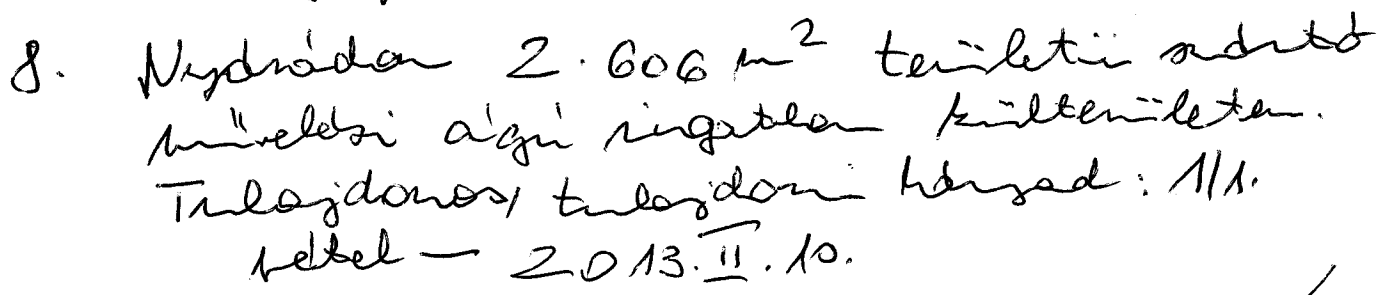 8. Nyárádon 2.606 m² területű szántó
művelési ágú ingatlan külterületen.
Tulajdonos, tulajdoni hányad: 1/1.
vétel — 2013. II. 10.